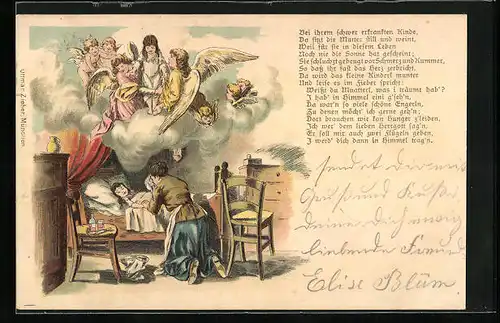 Bei ihrem schwer erkrankten Kinde,
Da sitzt die Mutter still und weint,
Weil für sie in diesem Leben
Noch nie die Sonne hat gescheint;
Sie schluchzt gebeugt vor Schmerz und Kummer,
So daß ihr fast das Herz zerbricht.
Da wird das kleine Kinderl munter
Und leise es im Fieber spricht:
"Weißt du Mutterl, was i träumt hab'?
I hab' in Himmel eini g'seh'n,
Da war'n so viele schöne Engerln,
Zu denen möcht' ich gerne geh'n;
Dort brauchen wir kan Hunger z'leiden,
Ich wer' dem lieben Herrgott sag'n,
Er soll mir auch zwei Flügeln geben,
I werd' dich dann in Himmel trag'n.
Ottmar Zieher, München
sendet dir mit
Gruß und Kuss
deine dich ewig
liebende Freundin
Elise Blüm